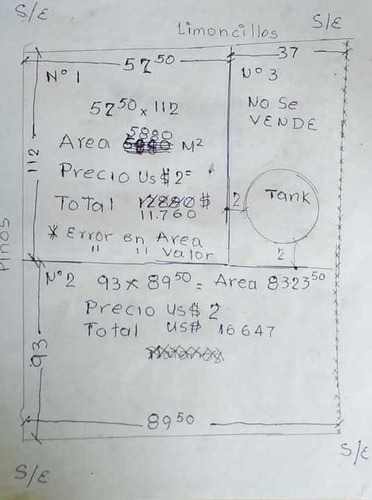 S/E
S/E
Limoncillos
57⁵⁰
37
Nº 1
57⁵⁰ x 112
Area 5880 M²
Precio US$ 2=
Total 12880 $
11.760
* Error en Area
" " Valor
Nº 3
No Se
VENDE
Tank
2
2
112
Pinos
Nº 2 93 x 89⁵⁰ = Area 8323⁵⁰
Precio US$ 2
Total US$ 16647
93
89⁵⁰
S/E
S/E